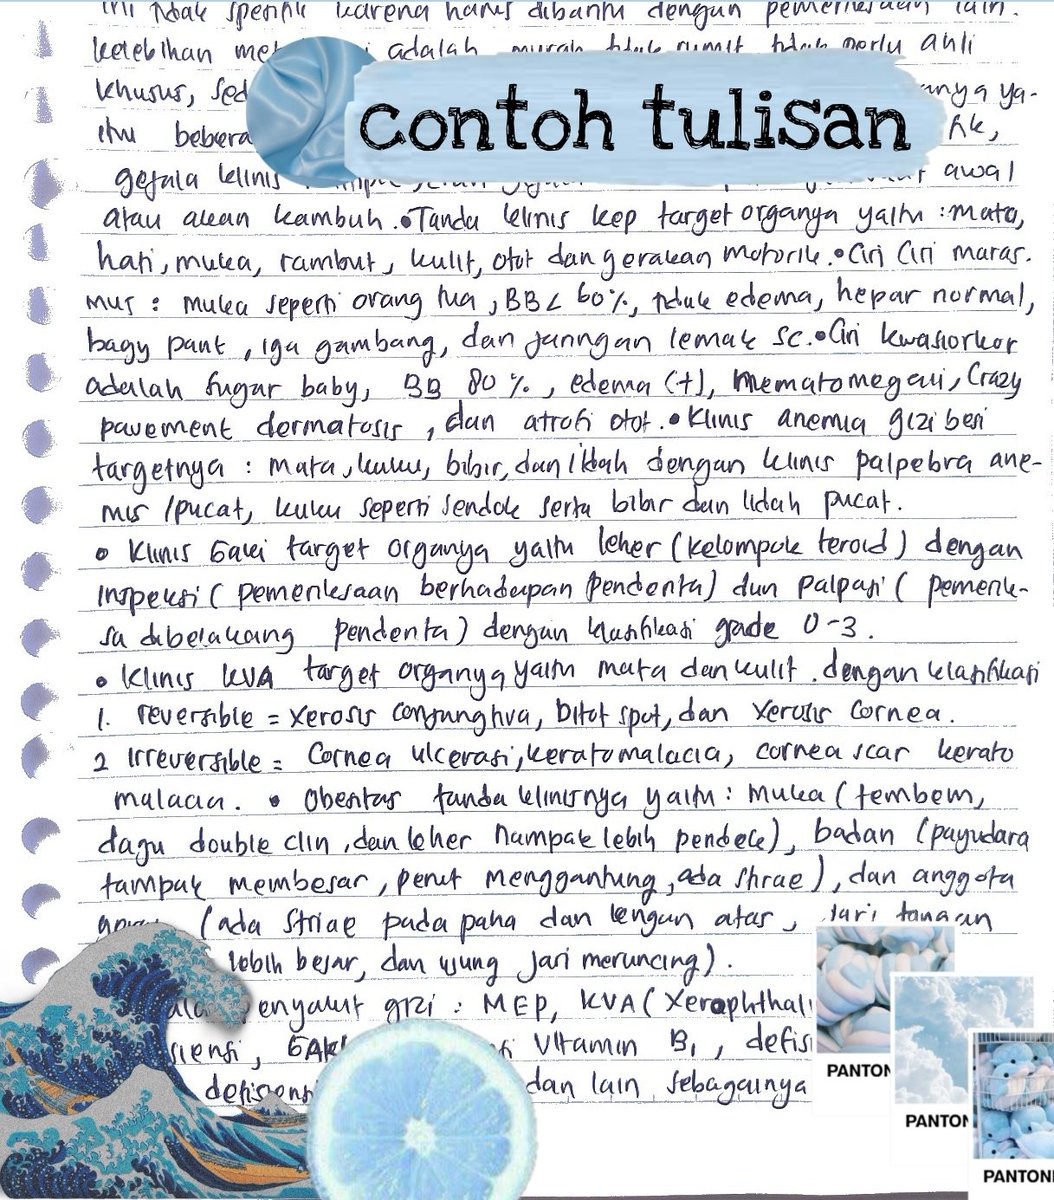 ini tidak spesifik karena harus dibantu dengan pemeriksaan lain.
kelebihan adalah murah tidak rumit tidak perlu ahli
khusus, sed anya ya-
itu bebera fik,
contoh tulisan
gejala klinis awal
atau akan kambuh. • Tanda klinis kep target organya yaitu : mata,
hati, muka, rambut, kulit, otot dan gerakan motorik. • Ciri Ciri maras.
mus : muka seperti orang tua, BB < 60%, tidak edema, hepar normal,
bagy pant, iga gambang, dan jaringan lemak sc. • Ciri kwasiorkor
adalah sugar baby, BB 80 %, edema (+), Crazy
pavement dermatosis, dan atrofi otot. • Klinis anemia gizi besi
targetnya : mata, kuku, bibir, dan lidah dengan klinis palpebra ane-
mis / pucat, kuku seperti sendok serta bibir dan lidah pucat.
• Klinis Gaki target organya yaitu leher (kelompok teroid) dengan
inspeksi ( pemeriksaan berhadapan pendenta) dan palpasi ( pemerik-
sa dibelakang pendenta) dengan klasifikasi grade 0-3.
• Klinis KVA target organya yaitu mata dan kulit. dengan klasifikasi
1. reversible = xerosis conjungtiva, bitot spot, dan xerosis cornea.
2 Irreversible = Cornea ulcerasi, keratomalacia, cornea scar kerato
malacia. • Obesitas tanda klinisnya yaitu : muka (tembem,
dagu double clin, dan leher nampak lebih pendek), badan (payudara
tampak membesar, perut menggantung, ada shrae), dan anggota
(ada Striae pada paha dan lengan atas, jari tangan
lebih besar, dan ujung jari meruncing).
enyakit gizi : MEP, KVA (Xerophthal
siensi, GAK Vitamin B1, defis
defisensi dan lain sebagainya
PANTON
PANTON
PANTONE